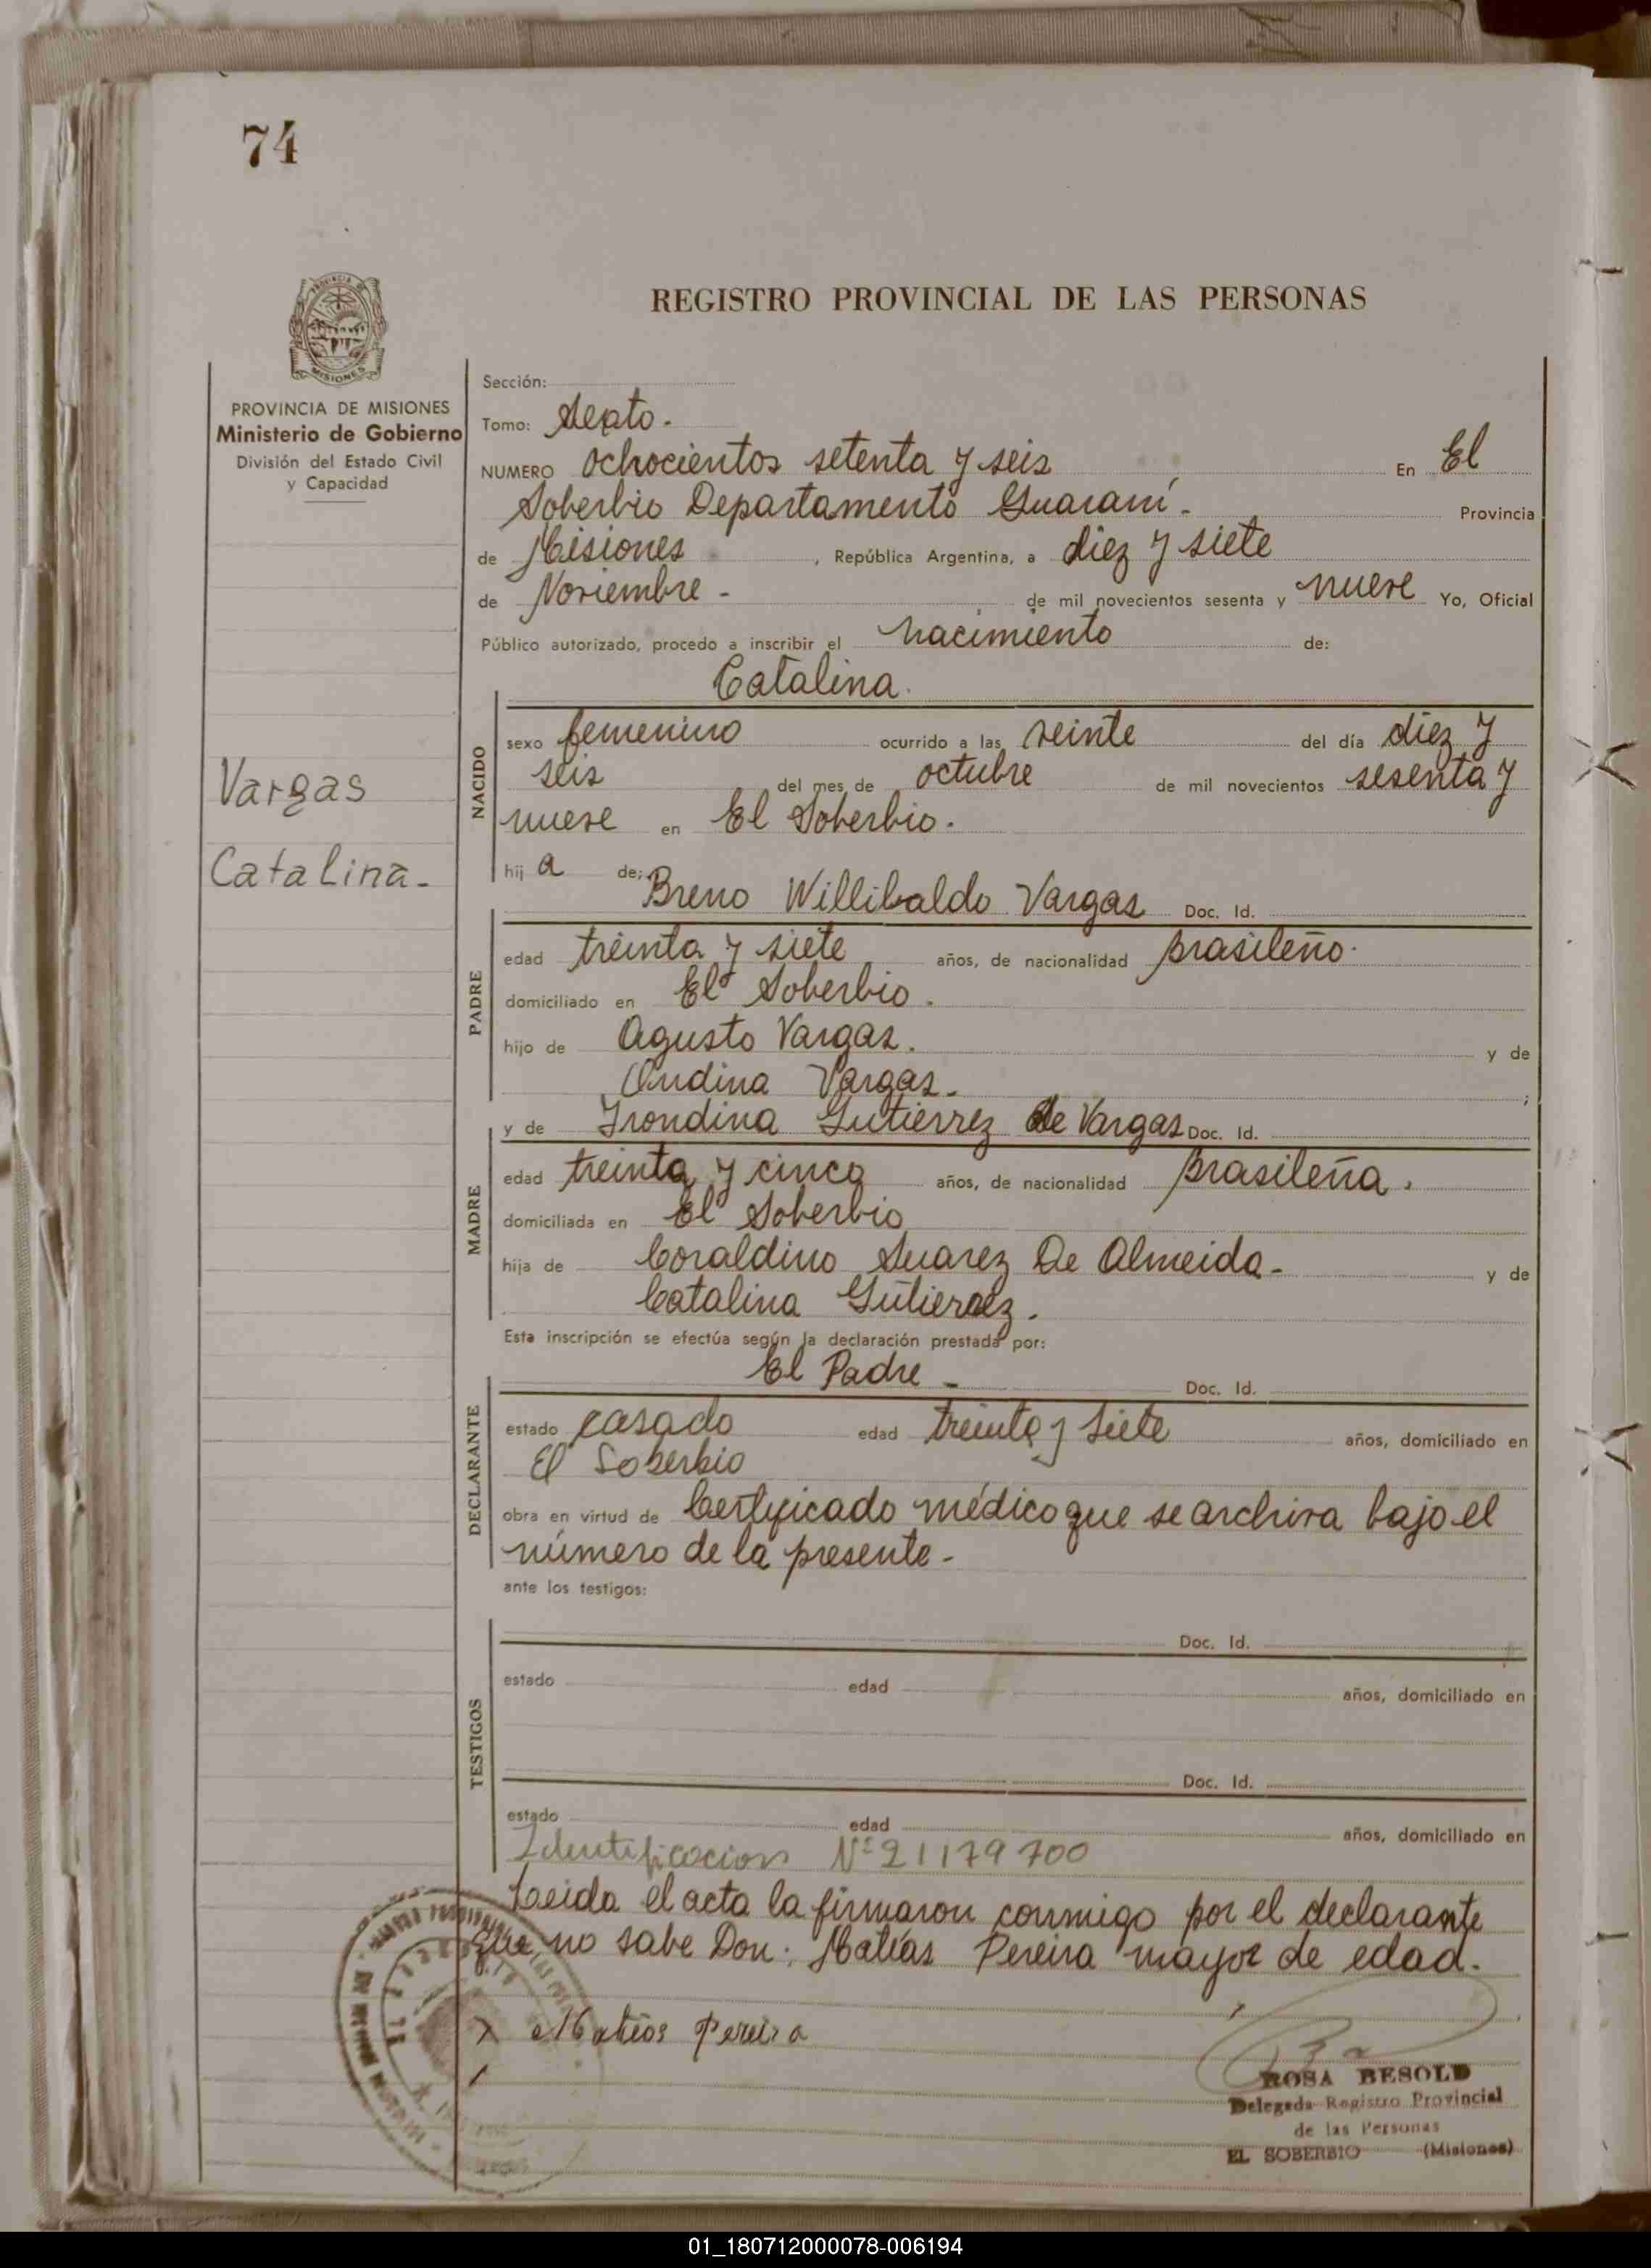 74
REGISTRO PROVINCIAL DE LAS PERSONAS
MISIONES
PROVINCIA DE MISIONES
Ministerio de Gobierno
División del Estado Civil
y Capacidad
Vargas
Catalina-
Sección:
Tomo: Sexto.
NUMERO ochocientos setenta y seis En El
Soberbio Departamento Guaraní - Provincia
de Misiones, República Argentina, a diez y siete
de Noviembre - de mil novecientos sesenta y nueve Yo, Oficial
Público autorizado, procedo a inscribir el nacimiento de:
Catalina.
NACIDO
sexo femenino ocurrido a las veinte del día diez y
seis del mes de octubre de mil novecientos sesenta y
nueve en El Soberbio.
hij a de: Breno Willibaldo Vargas Doc. Id.
PADRE
edad treinta y siete años, de nacionalidad brasileño.
domiciliado en El Soberbio.
hijo de Agusto Vargas. y de
Ondina Vargas. ;
y de Irondina Gutierrez de Vargas Doc. Id.
MADRE
edad treinta y cinco años, de nacionalidad brasileña.
domiciliada en El Soberbio
hija de Coraldino Suarez De Almeida- y de
Catalina Gutierrez.
Esta inscripción se efectúa según la declaración prestada por:
El Padre - Doc. Id.
DECLARANTE
estado casado edad treinta y siete años, domiciliado en
El Soberbio
obra en virtud de Certificado médico que se archiva bajo el
número de la presente-
ante los testigos:
TESTIGOS
Doc. Id.
estado edad años, domiciliado en
Doc. Id.
estado edad años, domiciliado en
Identificacion Nº 21179700
Leida el acta la firmaron conmigo por el declarante
que no sabe Don: Matías Pereira mayor de edad.
x Matios Pereira
ROSA BESOLD
Delegada Registro Provincial
de las Personas
EL SOBERBIO (Misiones)
01_180712000078-006194